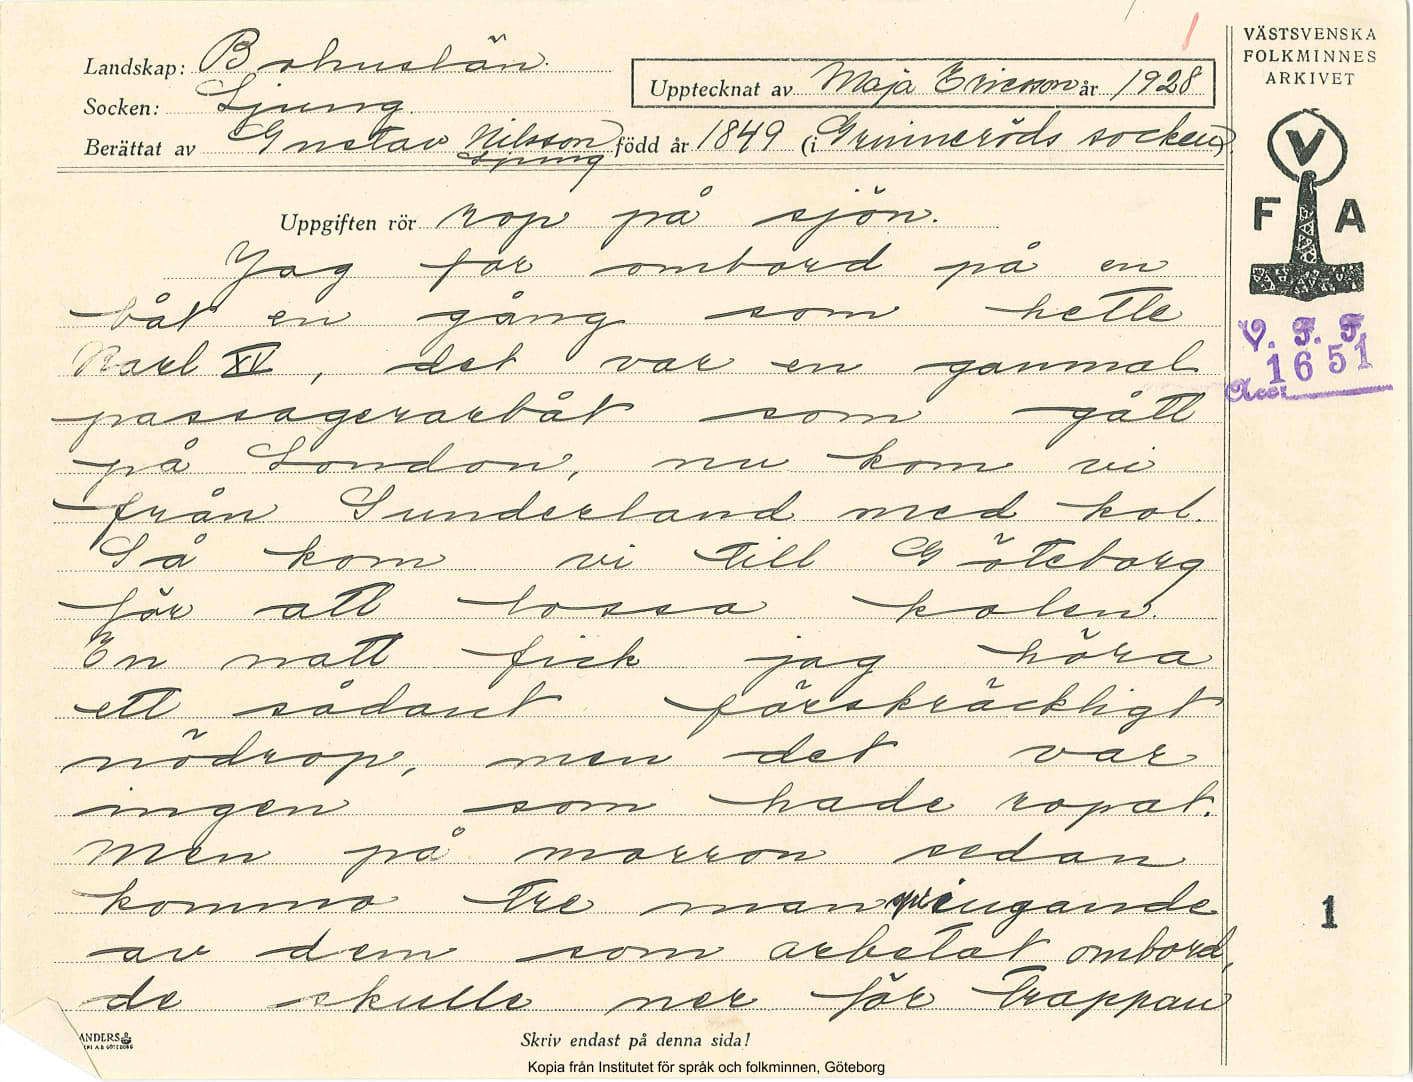 Landskap: Bohuslän.
Socken: Ljung
Berättat av Gustav Nilsson
Ljung
född år 1849 (i Grinneröds socken)
Upptecknat av Maja Ericsson år 1928
1
VÄSTSVENSKA
FOLKMINNES
ARKIVET
V
F A
V. F. F.
1651
Acc.
Uppgiften rör rop på sjön.
Jag for ombord på en
båt en gång som hette
Karl XV, det var en gammal
passagerarbåt som gått
på London, nu kom vi
från Sunderland med kol.
Så kom vi till Göteborg
för att lossa kolen.
En natt fick jag höra
ett sådant förskräckligt
nödrop, men det var
ingen som hade ropat.
Men på morron sedan
kommo tre man springande
av dem som arbetat ombord,
de skulle ner för trappan
1
Skriv endast på denna sida!
Kopia från Institutet för språk och folkminnen, Göteborg